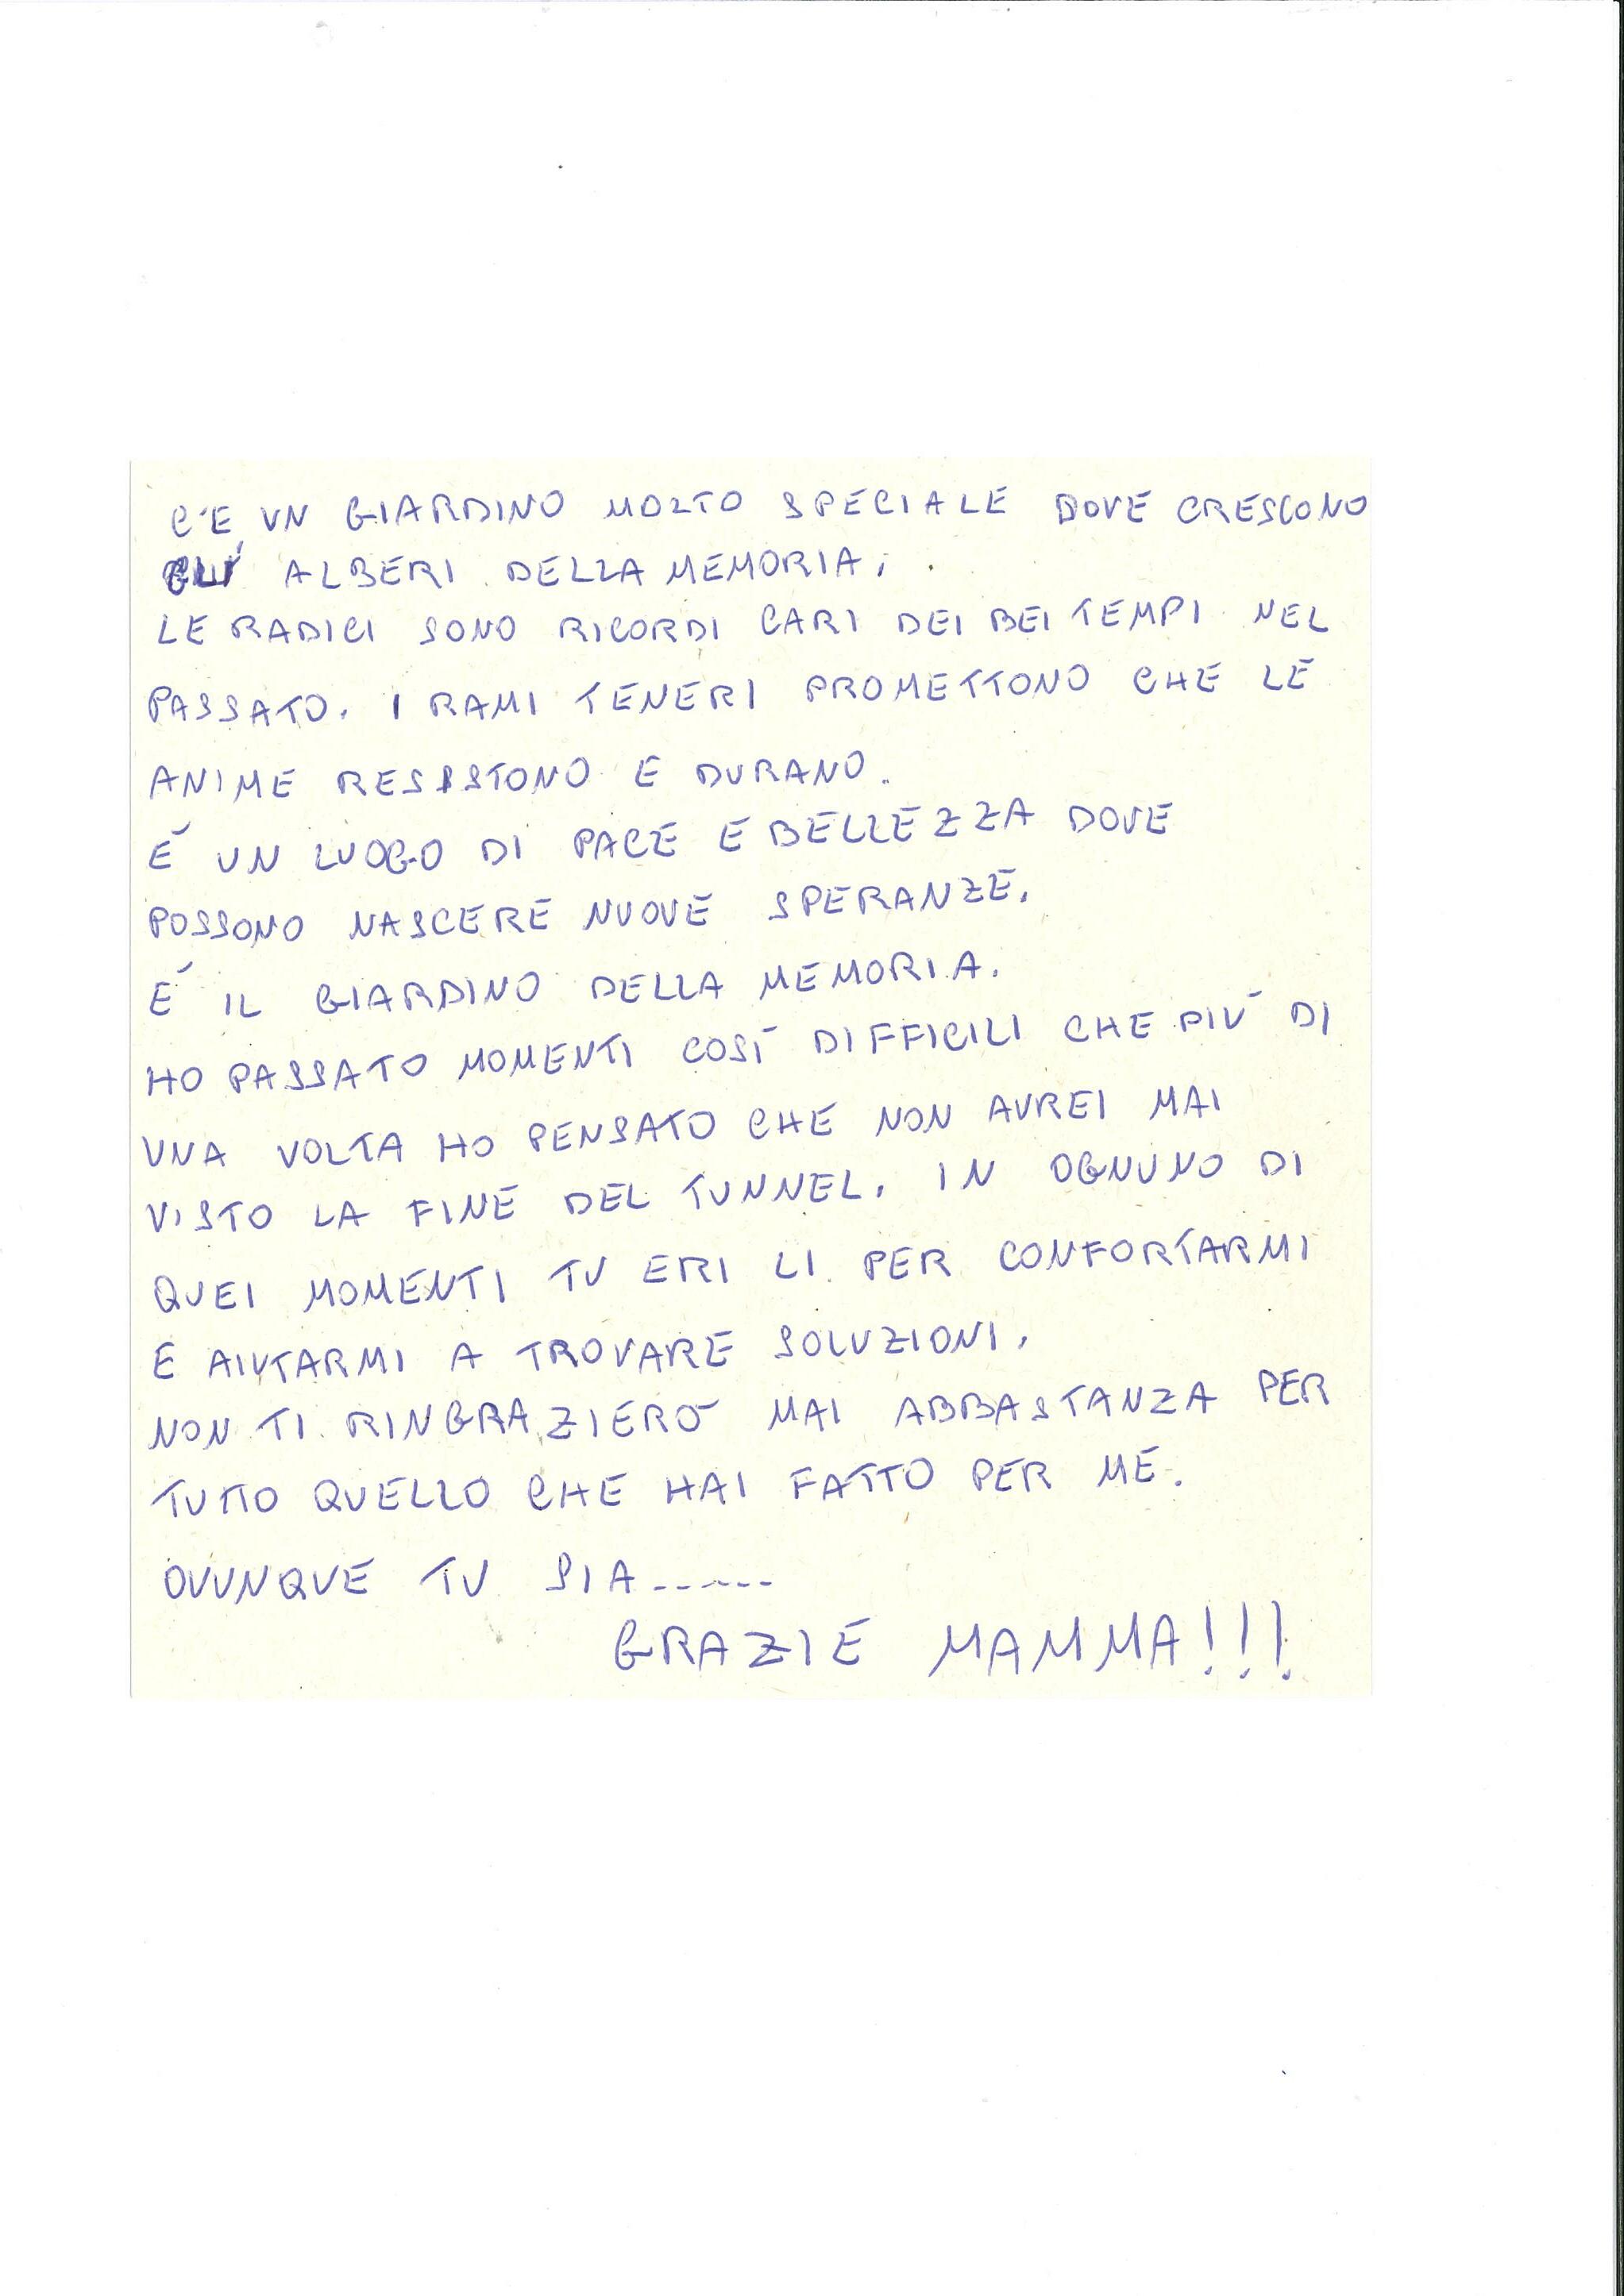 C'E UN GIARDINO MOLTO SPECIALE DOVE CRESCONO
GLI ALBERI DELLA MEMORIA.
LE RADICI SONO RICORDI CARI DEI BEI TEMPI NEL
PASSATO. I RAMI TENERI PROMETTONO CHE LE
ANIME RESISTONO E DURANO.
É UN LUOGO DI PACE E BELLEZZA DOVE
POSSONO NASCERE NUOVE SPERANZE.
É IL GIARDINO DELLA MEMORIA.
HO PASSATO MOMENTI COSÍ DIFFICILI CHE PIÚ DI
UNA VOLTA HO PENSATO CHE NON AVREI MAI
VISTO LA FINE DEL TUNNEL. IN OGNUNO DI
QUEI MOMENTI TU ERI LI PER CONFORTARMI
E AIUTARMI A TROVARE SOLUZIONI.
NON TI RINGRAZIERÓ MAI ABBASTANZA PER
TUTTO QUELLO CHE HAI FATTO PER ME.
OVUNQUE TU SIA------
GRAZIE MAMMA!!!